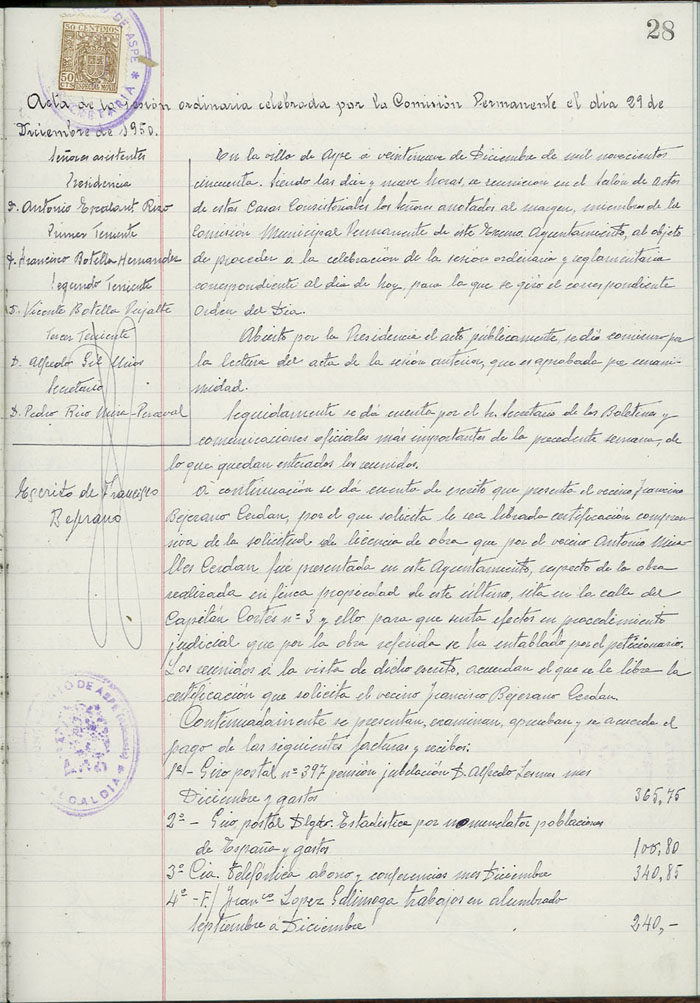 28
50 CENTIMOS
50 CTS
ESPECIAL MOVIL
DE ASPE
SECRETARIA
Acta de la sesión ordinaria celebrada por la Comisión Permanente el dia 29 de
Diciembre de 1950.
Señores asistentes
Presidencia
D. Antonio Rizo
Primer Teniente
D. Francisco Botella Hernandez
Segundo Teniente
D. Vicente Botella
Tercer Teniente
D. Alfredo Gil
Secretario
D. Pedro Rico Mira-Perceval
En la villa de Aspe a veintinueve de Diciembre de mil novecientos
cincuenta. Siendo las diez y nueve horas, se reunieron en el Salón de Actos
de estas Casas Consistoriales los señores anotados al margen, miembros de la
Comisión Municipal Permanente de este Excmo. Ayuntamiento, al objeto
de proceder a la celebración de la sesión ordinaria y reglamentaria
correspondiente al dia de hoy, para la que se giró el correspondiente
Orden del Dia.
Abierto por la Presidencia el acto públicamente, se dió comienzo por
la lectura del acta de la sesión anterior, que es aprobada por unani-
midad.
Seguidamente se dá cuenta por el Sr. Secretario de los Boletines y
comunicaciones oficiales más importantes de la precedente semana, de
lo que quedan enterados los reunidos.
Escrito de Francisco
Bejerano
A continuación se dá cuenta de escrito que presenta el vecino Francisco
Bejerano Cerdan, por el que solicita le sea librada certificación compren-
siva de la solicitud de licencia de obra que por el vecino Antonio Mira-
lles Cerdan fue presentada en este Ayuntamiento, respecto de la obra
realizada en finca propiedad de este último, sita en la calle del
Capitán Cortés nº 3 y ello para que surta efectos en procedimiento
judicial que por la obra referida se ha entablado por el peticionario.
Los reunidos a la vista de dicho escrito, acuerdan el que se le libre la
certificación que solicita el vecino Francisco Bejerano Cerdan.
Continuadamente se presentan, examinan, aprueban y se acuerda el
pago de las siguientes facturas y recibos:
1º- Giro postal nº 397 pensión jubilación D. Alfredo mes
Diciembre y gastos 365,75
2º - Giro postal Dlgdo. Estadística por nomenclator poblaciones
de España y gastos 100,80
3º Cia. Telefónica abono y conferencias mes Diciembre 340,85
4º - F/ Franco Lopez trabajos en alumbrado
Septiembre a Diciembre 240,-
DE ASPE
ALCALDIA